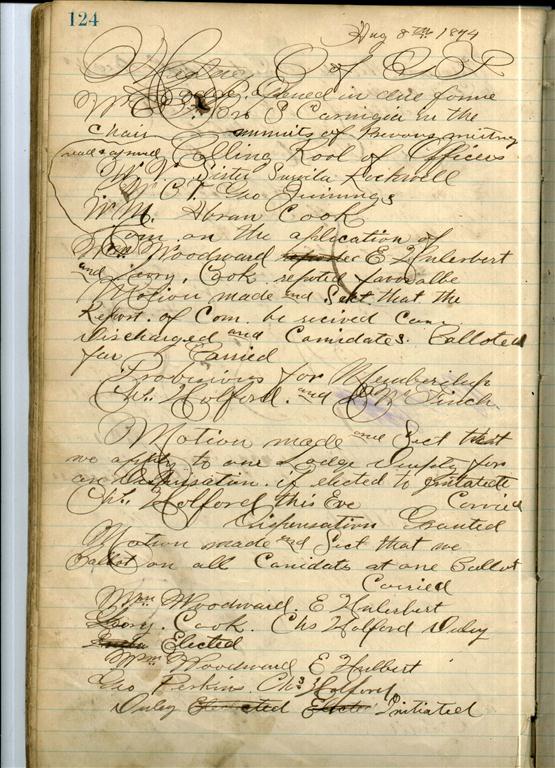 124
Aug 8th 1874
of G T
opened in due forme
W C T. Bro S Carnigia in the
chair minuits of Previous meeting
read & aproved Calling Rool of Officers
W. V. Sister Survila Rockwell
W C T. Geo Jinnings
W. M. Abran Cook
Com on the aplication of
Wm Woodward E Hulerbert
and Leory. Cook. repoted favoralbe
Motion made and Sect that the
Report. of Com. be recived Com
Discharged and Canidates. Balloted
for Carried
for Memberships
Chs. Holford. and Finch
Motion made and Sect that
we apply to our Lodge Deputy for
an Dispensation. if elected to Initiate
Chs. Holford this Eve Carried
Dispensation Granted
Motion made and Sect that we
Ballot on all Canidats at one Ballot
Carried
Wm Woodward. E Hulerbert
Leory. Cook. Chs Holford Duley
Elected
Wm Woodward E Hulbert
Geo Perkins. Chs Holford
Duley Initiated